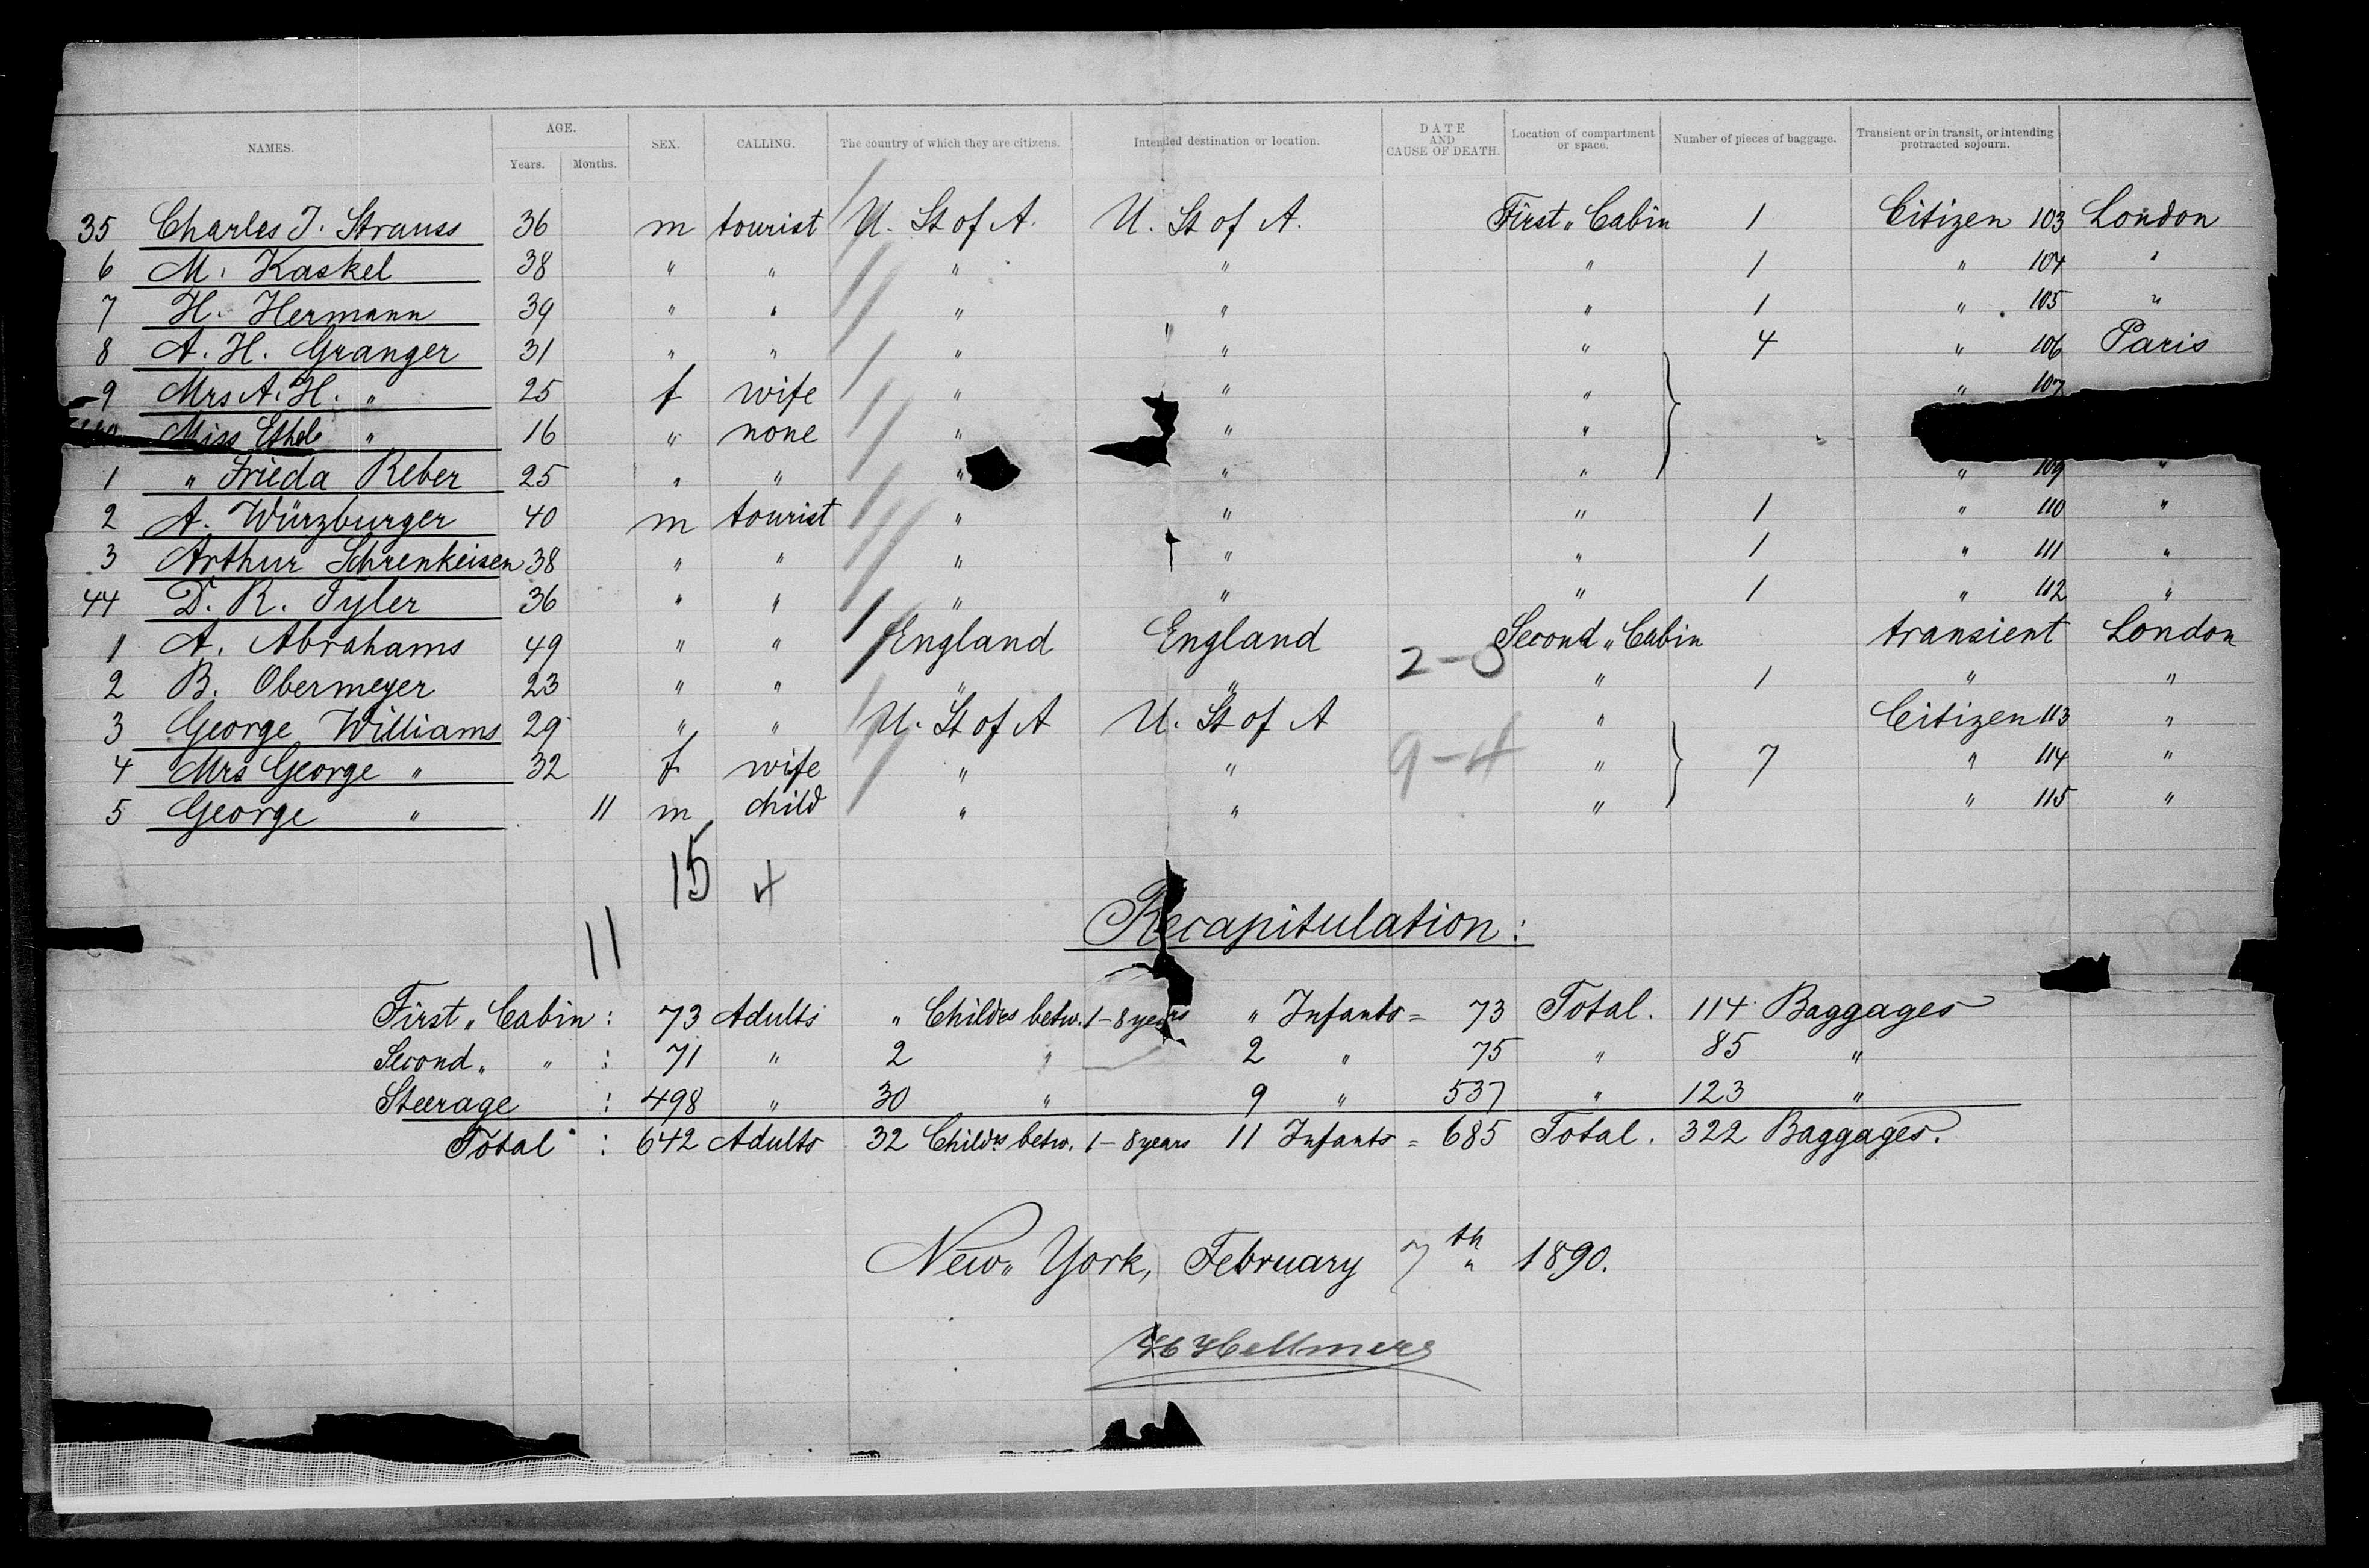 NAMES. AGE. Years. Months. SEX. CALLING. The country of which they are citizens. Intended destination or location. DATE AND CAUSE OF DEATH. Location of compartment or space. Number of pieces of baggage. Transient or in transit, or intending protracted sojourn.
35 Charles J. Strauss 36 m tourist U. St of A. U. St of A. First " Cabin 1 Citizen 103 London
6 M. Kaskel 38 " " " " " 1 " 104 "
7 H. Hermann 39 " " " " " 1 " 105 "
8 A. H. Granger 31 " " " " " 4 " 106 Paris
9 Mrs A. H. " 25 f wife " " " " 107
Miss Ethel " 16 " none " " "
1 " Frieda Reber 25 " " " " " " 109 "
2 A. Würzburger 40 m tourist " " " 1 " 110 "
3 Arthur Schrenkeisen 38 " " " " " 1 " 111 "
44 D. R. Tyler 36 " " " " " 1 " 112 "
1 A. Abrahams 49 " " England England Second " Cabin transient London
2-0
2 B. Obermeyer 23 " " " " " 1 " "
3 George Williams 29 " " U. St of A U. St of A " Citizen 113 "
4 Mrs George " 32 f wife " " 9-4 " } 7 " 114 "
5 George " 11 m child " " " " 115 "
15 4
11
Recapitulation:
First " Cabin : 73 Adults " Childrs betw. 1-8 years " Infants = 73 Total. 114 Baggages
Second " " : 71 " 2 " 2 " 75 " 85 "
Steerage : 498 " 30 " 9 " 537 " 123 "
Total : 642 Adults 32 Childrs betw. 1-8 years 11 Infants = 685 Total. 322 Baggages.
New" York, February 7th 1890.
H Hellmers